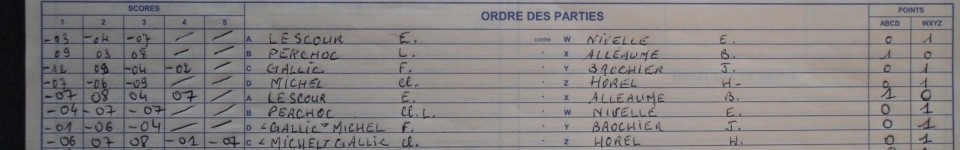 SCORES ORDRE DES PARTIES POINTS
1 2 3 4 5 ABCD WXYZ
-03 -04 -07 / / A LESCOUR E. contre W NIVELLE E. 0 1
09 03 08 / / B PERCHOC L. " X ALLEAUME B. 1 0
-12 09 -04 -02 / C GALLIC F. " Y BROCHIER J. 0 1
-07 -06 -09 / / D MICHEL Cl. " Z HOREL H. 0 1
-07 08 04 07 / A LESCOUR E. " X ALLEAUME B. 1 0
-04 -07 -07 / / B PERCHOC L. " W NIVELLE E. 0 1
-01 -06 -04 / / D GALLIC MICHEL F. " Y BROCHIER J. 0 1
-06 07 08 -01 -07 C MICHEL GALLIC Cl. " Z HOREL H. 0 1